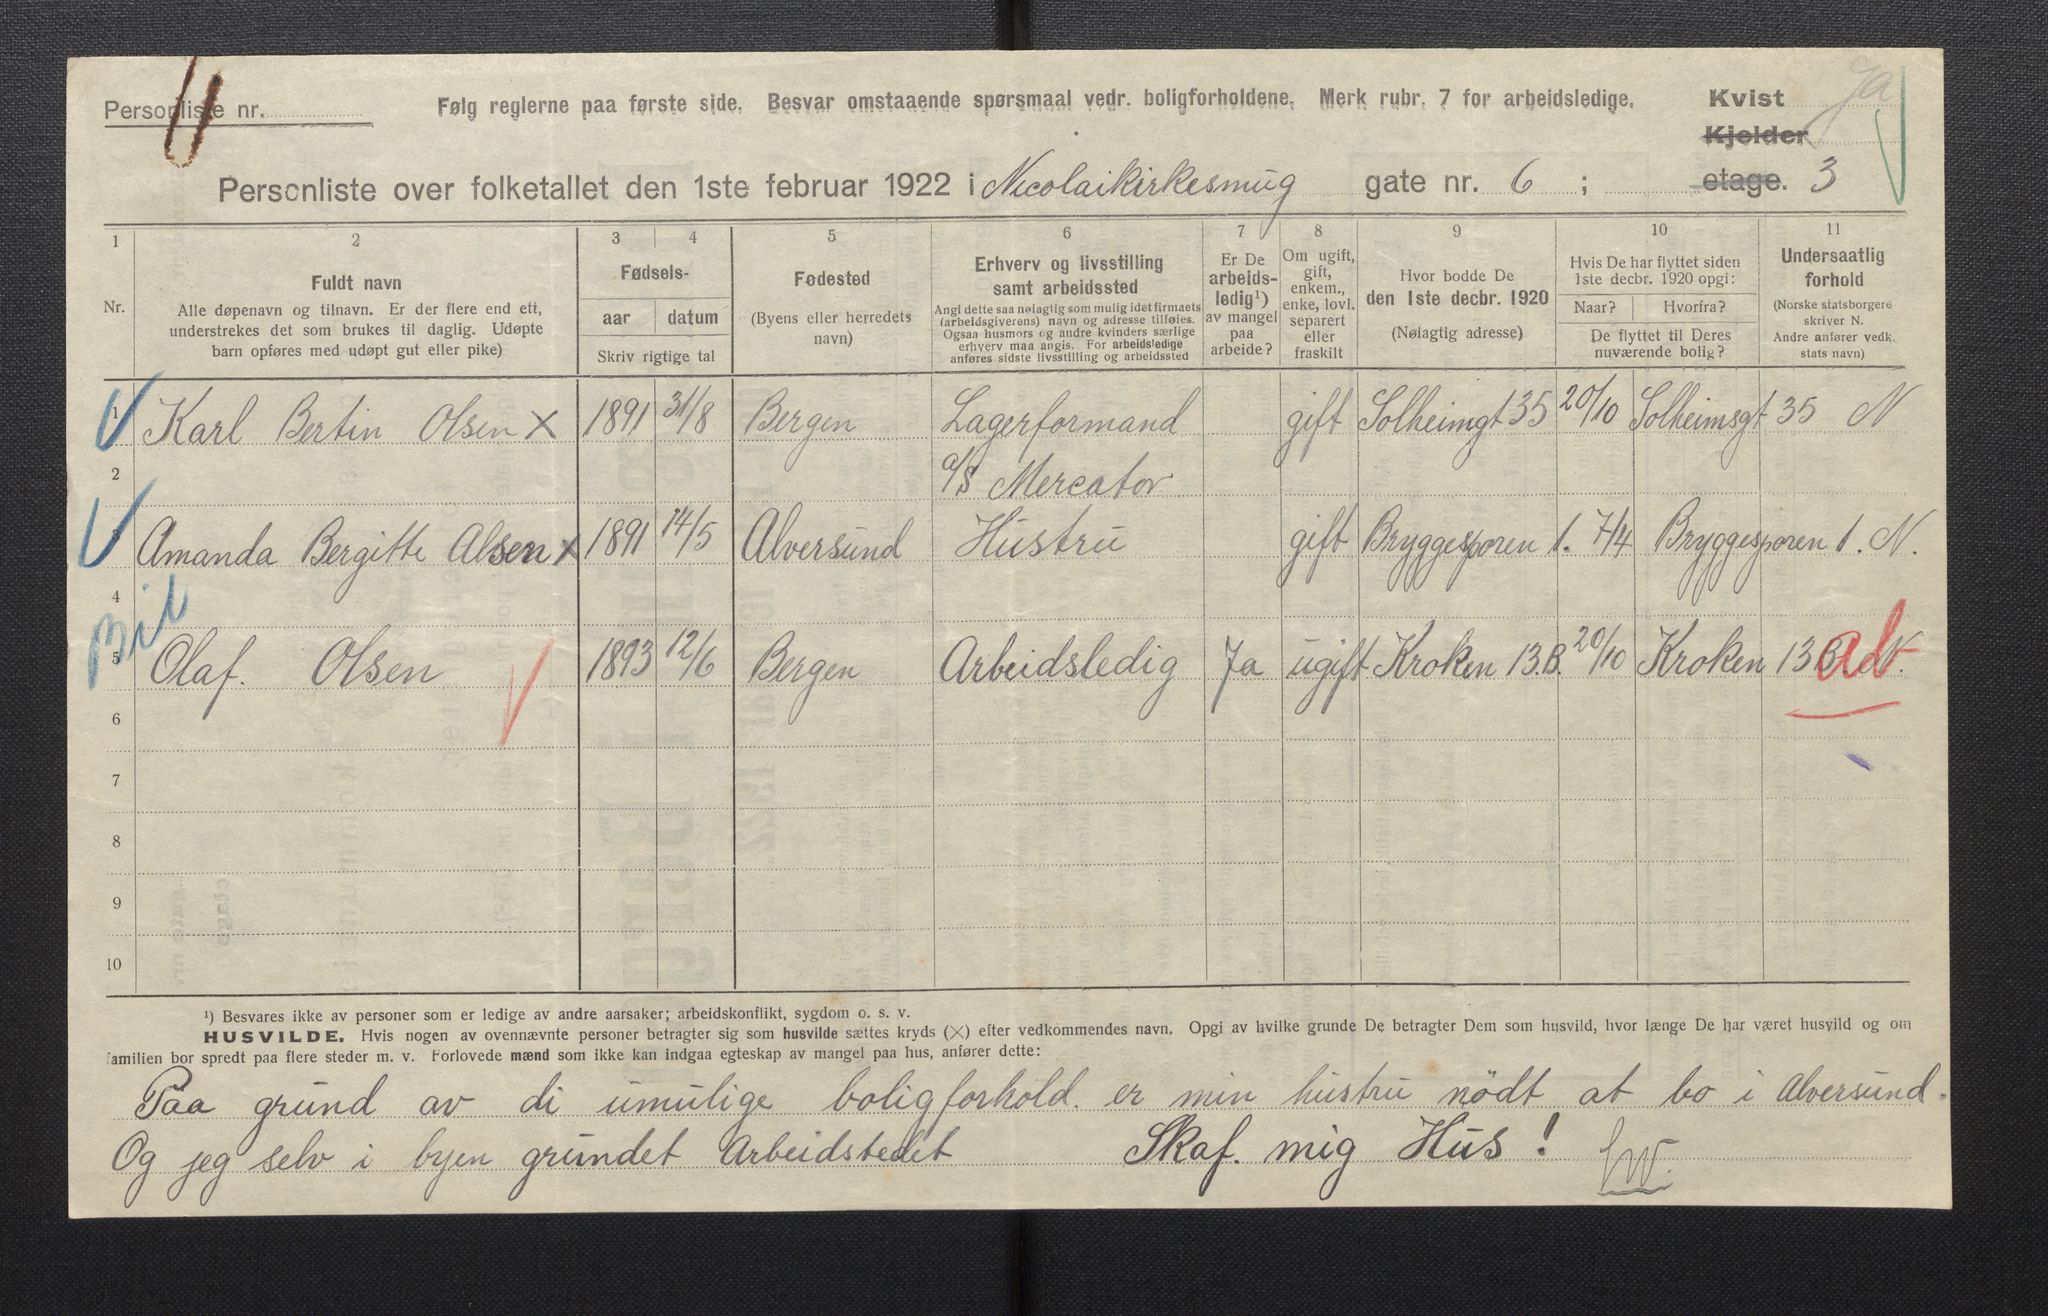 Personliste nr.
Følg reglerne paa første side. Besvar omstaaende spørsmaal vedr. boligforholdene. Merk rubr. 7 for arbeidsledige.
Kvist Ja
Kjelder
Personliste over folketallet den 1ste februar 1922 i Nicolaikirkesmug gate nr. 6 ; etage. 3
1 2 3 4 5 6 7 8 9 10 11
Nr.
Fuldt navn
Alle døpenavn og tilnavn. Er der flere end ett,
understrekes det som brukes til daglig. Udøpte
barn opføres med udøpt gut eller pike)
Fødsels-
aar datum
Skriv rigtige tal
Fødested
(Byens eller herredets
navn)
Erhverv og livsstilling
samt arbeidssted
Angi dette saa nøiaglig som mulig idet firmaets
(arbeidsgiverens) navn og adresse tilføies.
Ogsaa husmors og andre kvinders særlige
erhverv maa angis. For arbeidsledige
anføres sidste livsstilling og arbeidssted
Er De
arbeids-
ledig¹)
av mangel
paa
arbeide?
Om ugift,
gift,
enkem.,
enke, lovl.
separert
eller
fraskilt
Hvor bodde De
den 1ste decbr. 1920
(Nøiagtig adresse)
Hvis De har flyttet siden
1ste decbr. 1920 opgi:
Naar? Hvorfra?
De flyttet til Deres
nuværende bolig?
Undersaatlig
forhold
(Norske statsborgere
skriver N.
Andre anfører vedk.
stats navn)
1 Karl Bertin Olsen X 1891 31/8 Bergen Lagerformand gift Solheimgt 35 20/10 Solheimsgt 35 N
2 a/s Mercator
3 Amanda Bergitte Olsen x 1891 14/5 Alversund Hustru gift Bryggesporen 1. 7/4 Bryggesporen 1. N.
4
5 Olaf. Olsen 1893 12/6 Bergen Arbeidsledig Ja ugift Kroken 13.B. 20/10 Kroken 13 B N.
6
7
8
9
10
¹) Besvares ikke av personer som er ledige av andre aarsaker; arbeidskonflikt, sygdom o. s. v.
HUSVILDE. Hvis nogen av ovennævnte personer betragter sig som husvilde sættes kryds (X) efter vedkommendes navn. Opgi av hvilke grunde De betragter Dem som husvild, hvor længe De har været husvild og om
familien bor spredt paa flere steder m. v. Forlovede mænd som ikke kan indgaa egteskap av mangel paa hus, anfører dette:
Paa grund av di umulige boligforhold. er min hustru nödt at bo i Alversund.
Og jeg selv i byen grundet Arbeidstedet Skaf. mig Hus!